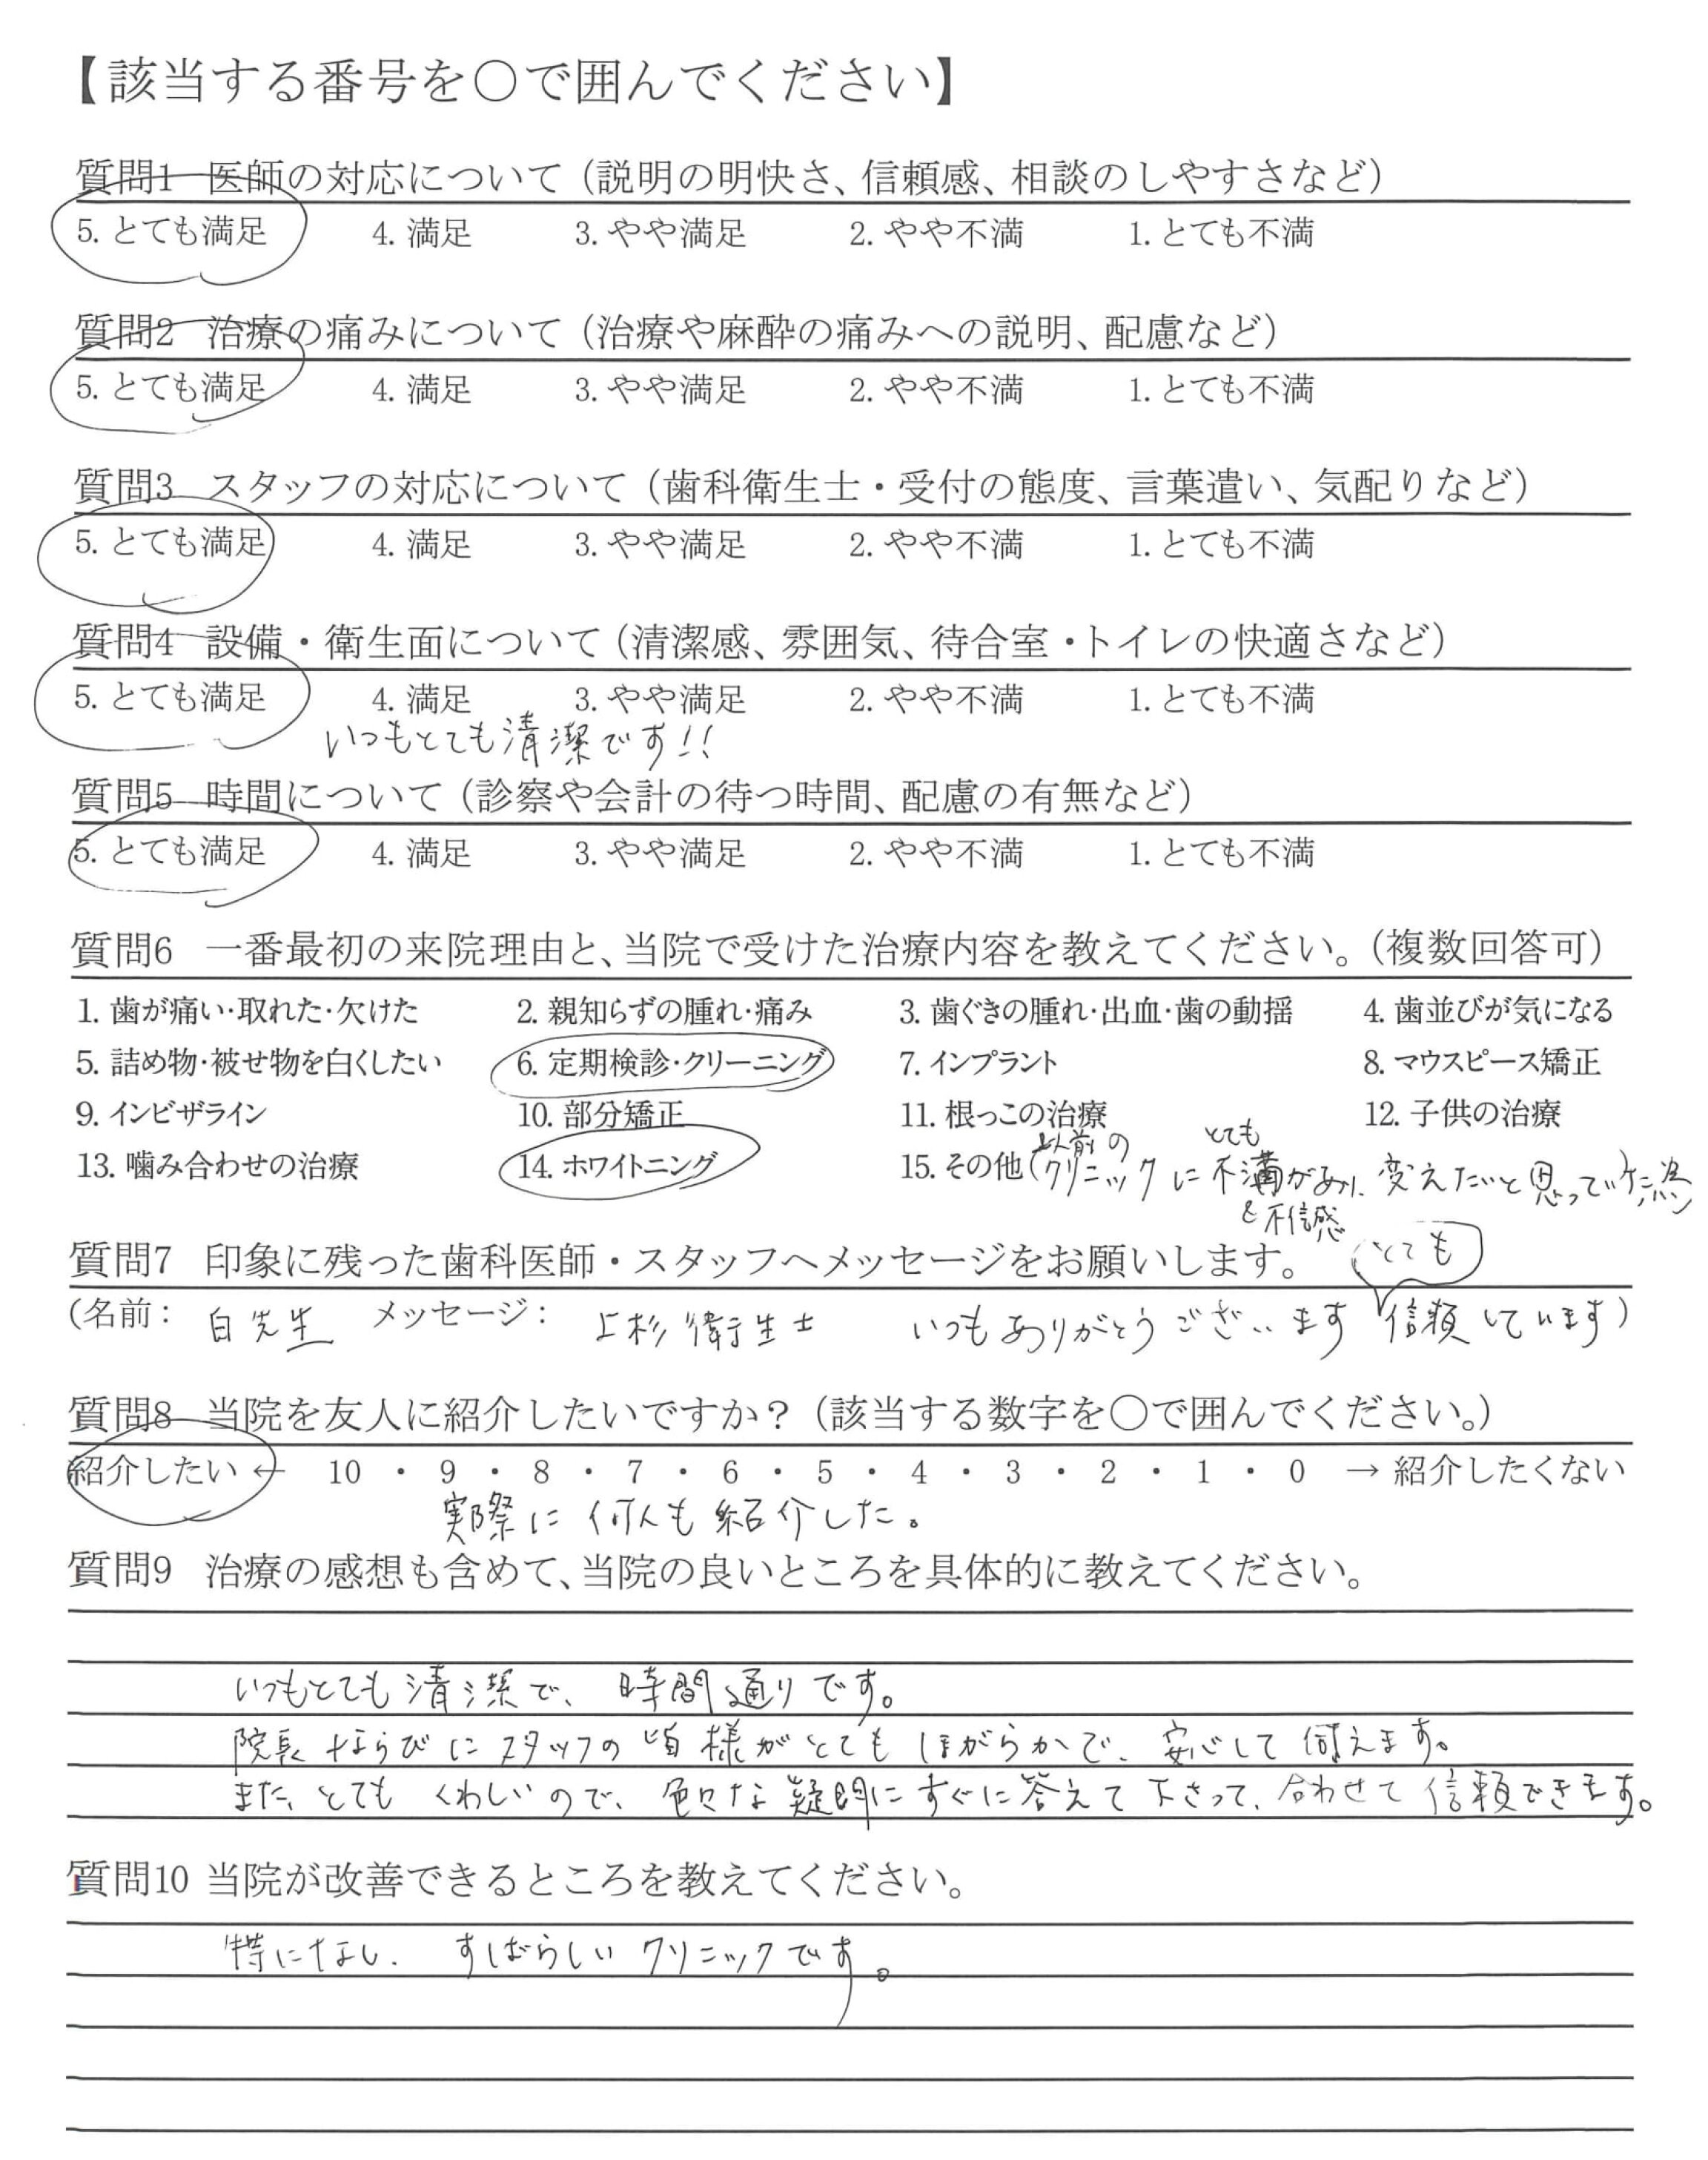 【該当する番号を○で囲んでください】
質問1 医師の対応について（説明の明快さ、信頼感、相談のしやすさなど）
5. とても満足 4. 満足 3. やや満足 2. やや不満 1. とても不満
質問2 治療の痛みについて（治療や麻酔の痛みへの説明、配慮など）
5. とても満足 4. 満足 3. やや満足 2. やや不満 1. とても不満
質問3 スタッフの対応について（歯科衛生士・受付の態度、言葉遣い、気配りなど）
5. とても満足 4. 満足 3. やや満足 2. やや不満 1. とても不満
質問4 設備・衛生面について（清潔感、雰囲気、待合室・トイレの快適さなど）
5. とても満足 4. 満足 3. やや満足 2. やや不満 1. とても不満
いつもとても清潔です!!
質問5 時間について（診察や会計の待つ時間、配慮の有無など）
5. とても満足 4. 満足 3. やや満足 2. やや不満 1. とても不満
質問6 一番最初の来院理由と、当院で受けた治療内容を教えてください。（複数回答可）
1. 歯が痛い・取れた・欠けた 2. 親知らずの腫れ・痛み 3. 歯ぐきの腫れ・出血・歯の動揺 4. 歯並びが気になる
5. 詰め物・被せ物を白くしたい 6. 定期検診・クリーニング 7. インプラント 8. マウスピース矯正
9. インビザライン 10. 部分矯正 11. 根っこの治療 12. 子供の治療
以前の とても
13. 噛み合わせの治療 14. ホワイトニング 15. その他（クリニックに不満があり、変えたいと思っていた為）
&不信感
質問7 印象に残った歯科医師・スタッフへメッセージをお願いします。 とても
（名前： 白先生 メッセージ： 上杉衛生士 いつもありがとうございます 信頼しています）
質問8 当院を友人に紹介したいですか？（該当する数字を○で囲んでください。）
紹介したい ← 10 ・ 9 ・ 8 ・ 7 ・ 6 ・ 5 ・ 4 ・ 3 ・ 2 ・ 1 ・ 0 → 紹介したくない
実際に何人も紹介した。
質問9 治療の感想も含めて、当院の良いところを具体的に教えてください。
いつもとても清潔で、時間通りです。
院長ならびにスタッフの皆様がとてもほがらかで、安心して伺えます。
また、とてもくわしいので、色々な疑問にすぐに答えて下さって、合わせて信頼できます。
質問10 当院が改善できるところを教えてください。
特になし。 すばらしいクリニックです。